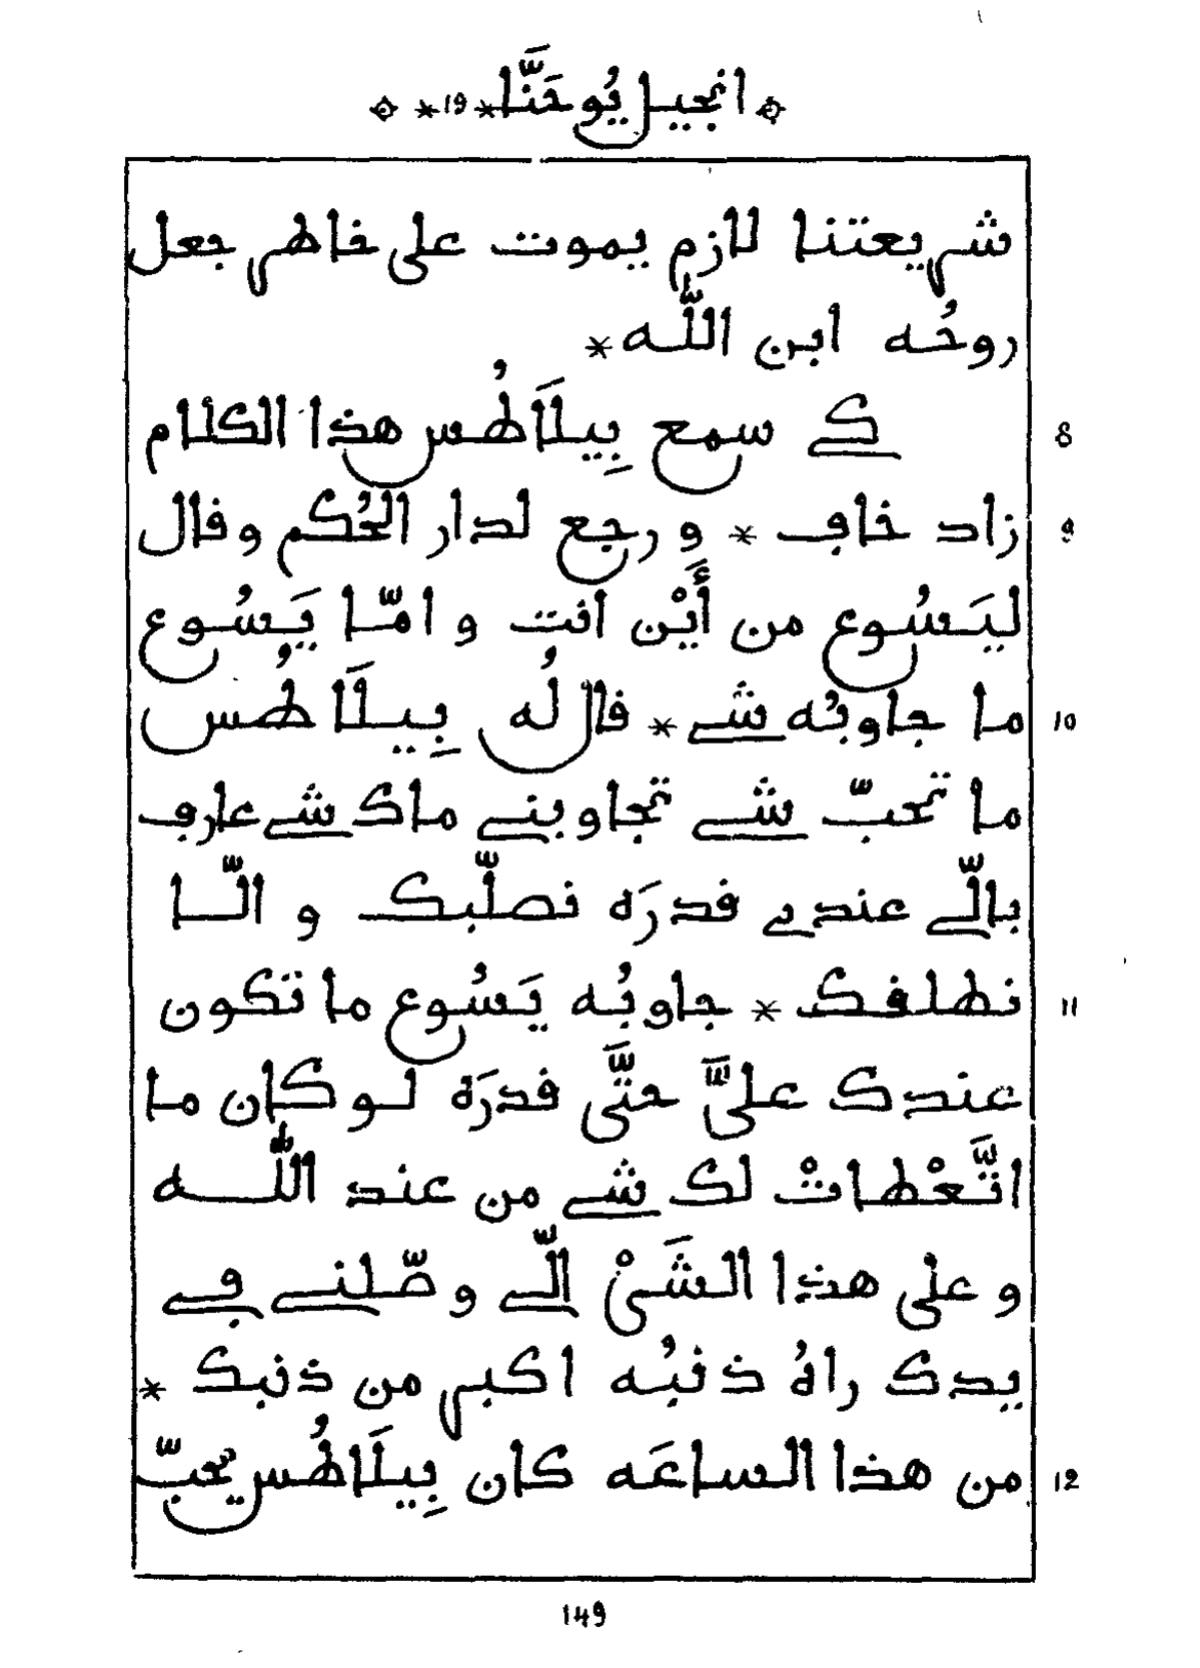 انجيل يُوحَنَّا *19*
شريعتنا لازم يموت على خاطر جعل
روحُه ابن اللّٰه *
8 كے سمع بِيلَاطُس هذا الكلام
9 زاد خاف * و رجع لدار الحُكم وقال
ليَسُوع من أَيْن انت و امّا يَسُوع
10 ما جاوبُه شے * قال لُه بِيلَاطُس
ما تحبّ شے تجاوبنے ماك شے عارف
بالّے عندے قدرَه نصلّبك و الّا
11 نطلقك * جاوبُه يَسُوع ما تكون
عندك علىَّ حتَّى قدرَة لو كان ما
اتَّعْطاتْ لك شے من عند اللّٰه
و على هذا الشَىْ الّے وصّلنے فے
يدك راهُ ذنبُه اكبر من ذنبك *
12 من هذا الساعَه كان بِيلَاطُس يحبّ
149